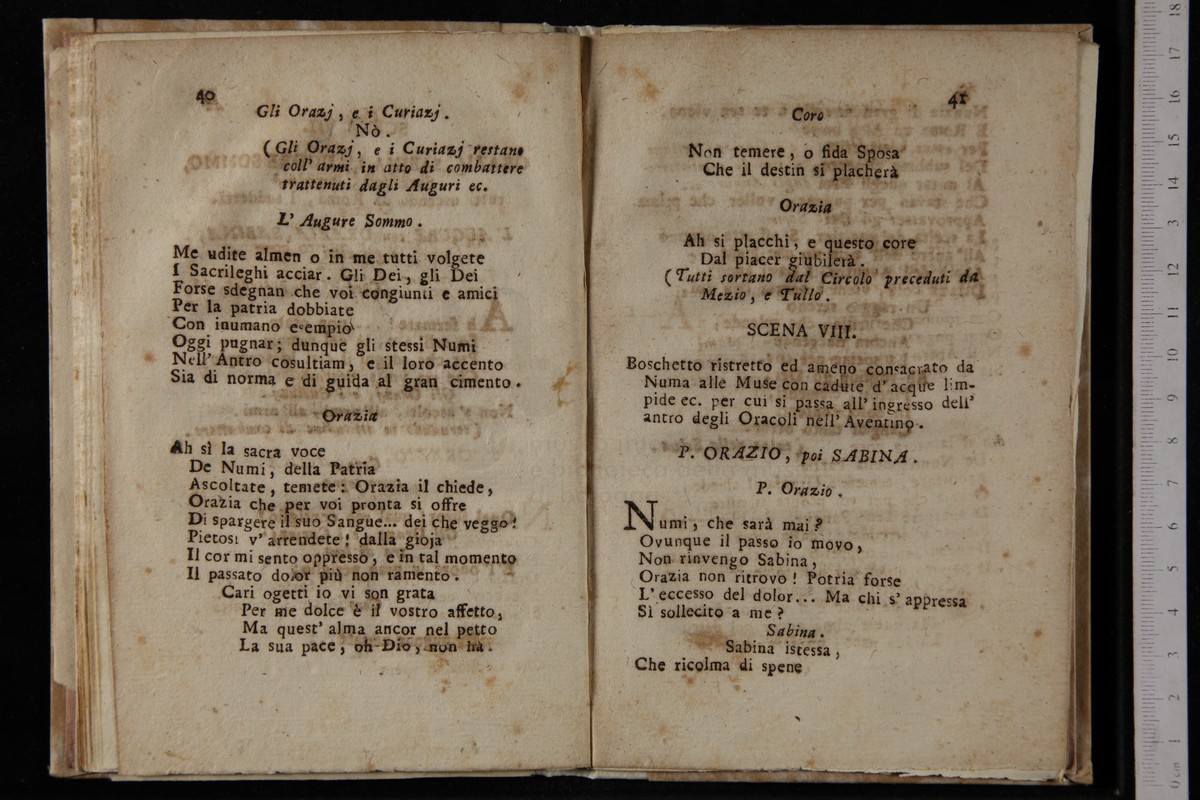 40
Gli Orazj, e i Curiazj.
Nò.
(Gli Orazj, e i Curiazj restano
coll' armi in atto di combattere
trattenuti dagli Auguri ec.
L' Augure Sommo.
Me udite almen o in me tutti volgete
I Sacrileghi acciar. Gli Dei, gli Dei
Forse sdegnan che voi congiunti e amici
Per la patria dobbiate
Con inumano esempio
Oggi pugnar; dunque gli stessi Numi
Nell' Antro cosultiam, e il loro accento
Sia di norma e di guida al gran cimento.
Orazia
Ah sì la sacra voce
De Numi, della Patria
Ascoltate, temete: Orazia il chiede,
Orazia che per voi pronta si offre
Di spargere il suo Sangue... dei che veggo!
Pietosi v' arrendete! dalla gioja
Il cor mi sento oppresso, e in tal momento
Il passato dolor più non ramento.
Cari ogetti io vi son grata
Per me dolce è il vostro affetto,
Ma quest' alma ancor nel petto
La sua pace, oh Dio, non hà.
41
Coro
Non temere, o fida Sposa
Che il destin si placherà
Orazia
Ah si placchi, e questo core
Dal piacer giubilerà.
(Tutti sortano dal Circolo preceduti da
Mezio, e Tullo.
SCENA VIII.
Boschetto ristretto ed ameno consacrato da
Numa alle Muse con cadute d' acque lim-
pide ec. per cui si passa all' ingresso dell'
antro degli Oracoli nell' Aventino.
P. ORAZIO, poi SABINA.
P. Orazio.
Numi, che sarà mai?
Ovunque il passo io movo,
Non rinvengo Sabina,
Orazia non ritrovo! Potria forse
L' eccesso del dolor... Ma chi s' appressa
Sì sollecito a me?
Sabina.
Sabina istessa,
Che ricolma di spene